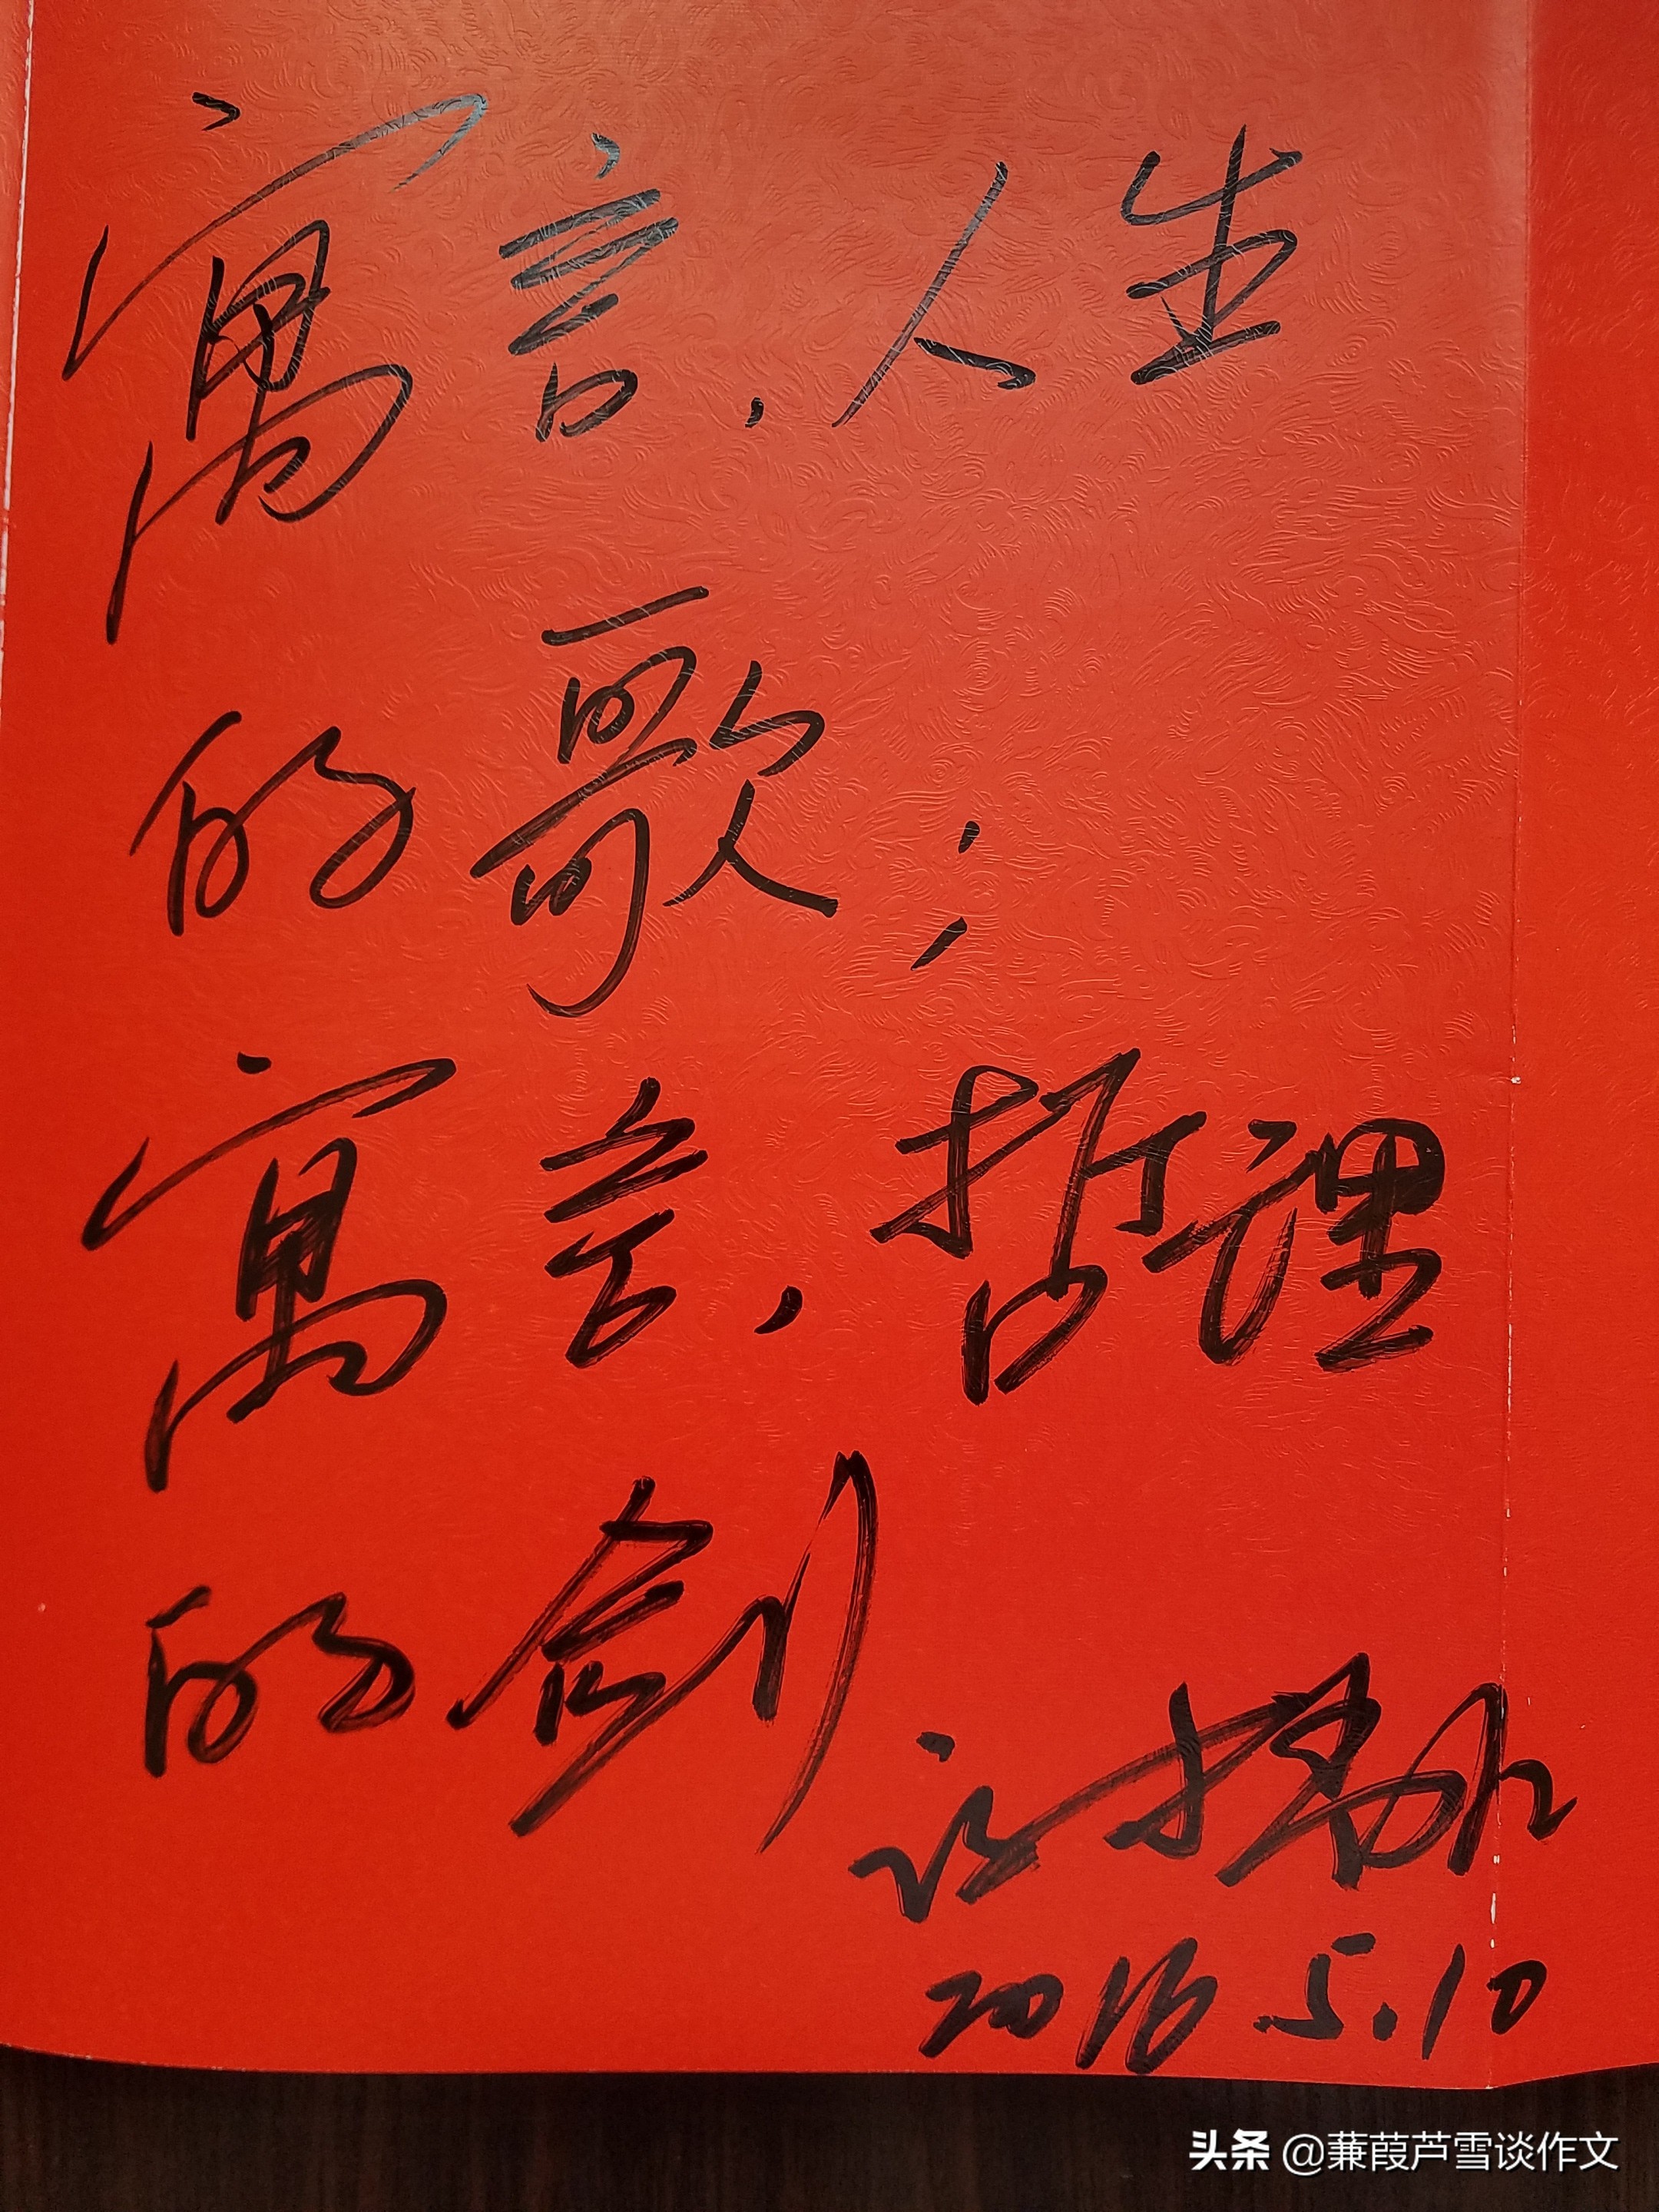 寓言，人生
的歌；
寓言，哲理
的剑
2016 5.10
头条 @蒹葭芦雪谈作文